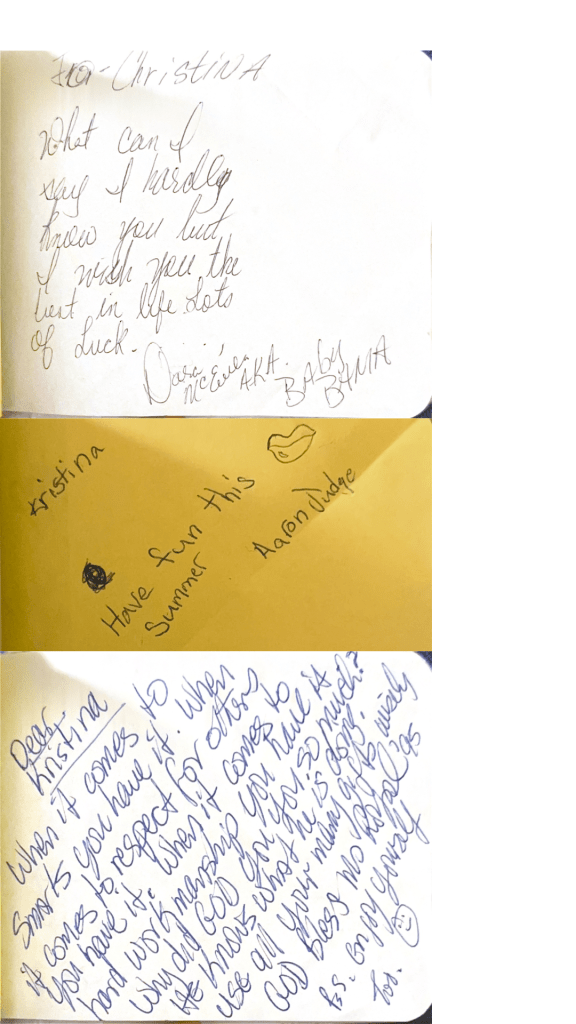 For - Christina
What can I
say I hardly
know you but
I wish you the
best in life. Lots
of Luck.
AKA. Baby
BAMA
Kristina
Have fun this
Summer
Aaron Judge
Dear
Kristina
When it comes to
Smarts you have it. When
it comes to respect for others
you have it. When it comes to
hard workmanship you have it
Why did GOD give you so much?
He knows what he is doing
use all your many gifts wisely
GOD Bless Mo Royal '95
P.S. enjoy yourself
too.